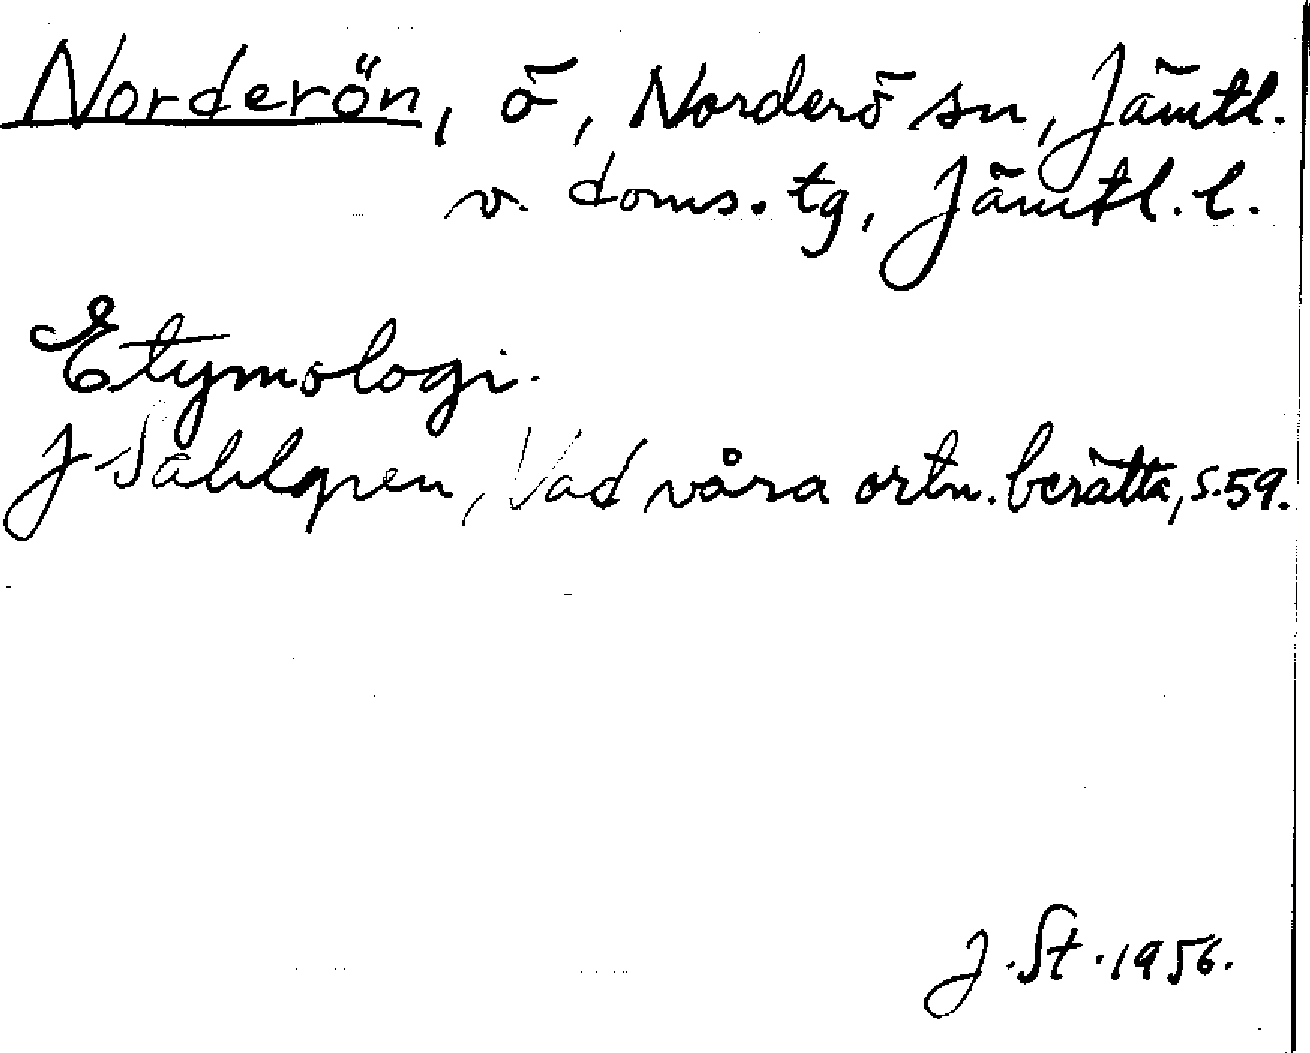 Norderön, ö, Norderö sn, Jämtl.
v. doms. tg, Jämtl. l.
Etymologi.
J Sahlgren, Vad våra ortn. berätta, s. 59.
J. St. 1956.